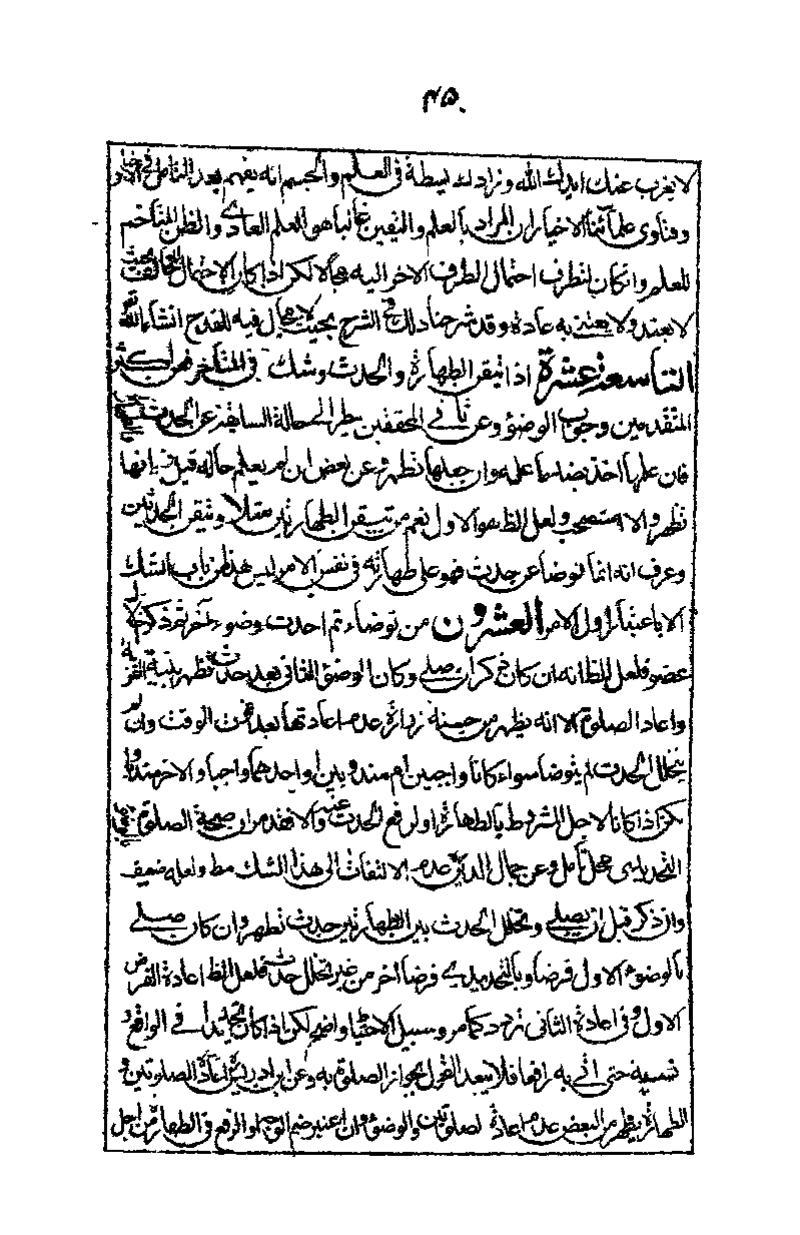 ٤٥٠
لا يغرب عنك ايدك الله وزادك بسطة فى العلم والجسم انه يفهم بعد التامل فى الاخبار
وفتاوى علمائنا الاخيار ان المراد بالعلم واليقين غالبا هو العلم العادى والظن المتاخم
للعلم وان كان بتطرف احتمال الطرف الاخر اليه مجالا لكن اذا كان الاحتمال المخالف بحيث
لا يعتد ولا يعتنى به عادة وقد شرحنا ذلك فى الشرح بحيث لا مجال فيه للقدح انشاء الله تعالى
التاسعة عشرة اذا تيقن الطهارة والحدث وشك فى المتاخر فعن اكثر
المتقدمين وجوب الوضوء وعن ثانى المحققين ينظر الى حالة السابقة عن الحدث
فان علمها اخذ بضد ما علمه وان جهلها تطهر وعن بعض ان لم يعلم حاله قبل زمانهما
تطهر والا استصحب ولعل الظ هو الاول نعم من تيقن الطهارتين مثلا وتيقن الحدثين
وعرف انه انما توضا عن حدث فهو على طهارته فى نفس الامر ليس هذا من باب الشك
الا باعتبار اول الامر العشرون من توضاء ثم احدث وضوء آخر ثم ذكر خلا
عضو فلعل الظ انه ان كان ذكر ان صلى وكان الوضوء الثانى بعد حدث تطهر بنية القربة
واعاد الصلوة الا انه يظهر من حسنة زرارة عدم اعادتها بعد فوت الوقت وان لم
يتخلل الحدث لم يتوضا سواء كانا واجبين ام مندوبين او احدهما واجبا والاخر مندوبا
لكن اذا كانا لاجل الشروط بالطهارة او لرفع الحدث عنه والا فقد مر ان صحة الصلوة
التجديدى محل تامل وعن جمال الدين عدم الالتفات الى هذا الشك مط ولعله ضعيف
وان ذكر قبل ان يصلى وتخلل الحدث بين الطهارتين حدث تطهر وان كان صلى
بالوضوء الاول فرضا وبالتجديدى فرضا اخر من غير تخلل حدث فلعل الظ اعادة الفرض
الاول وفى اعادة الثانى تردد كما مر وسبيل الاحتياط واضح لكن اذا كان تجديدا فى الواقع و
نسيه حتى اتى به رافعا فلا يبعد القول بجواز الصلوة به وعن ابن ادريس اعادة الصلوتين و
الطهارة يظهر من البعض عدم اعادة لصلوتين والوضوء وان اعتبر ضم الوجه او الرفع فى الطهارة من اجل